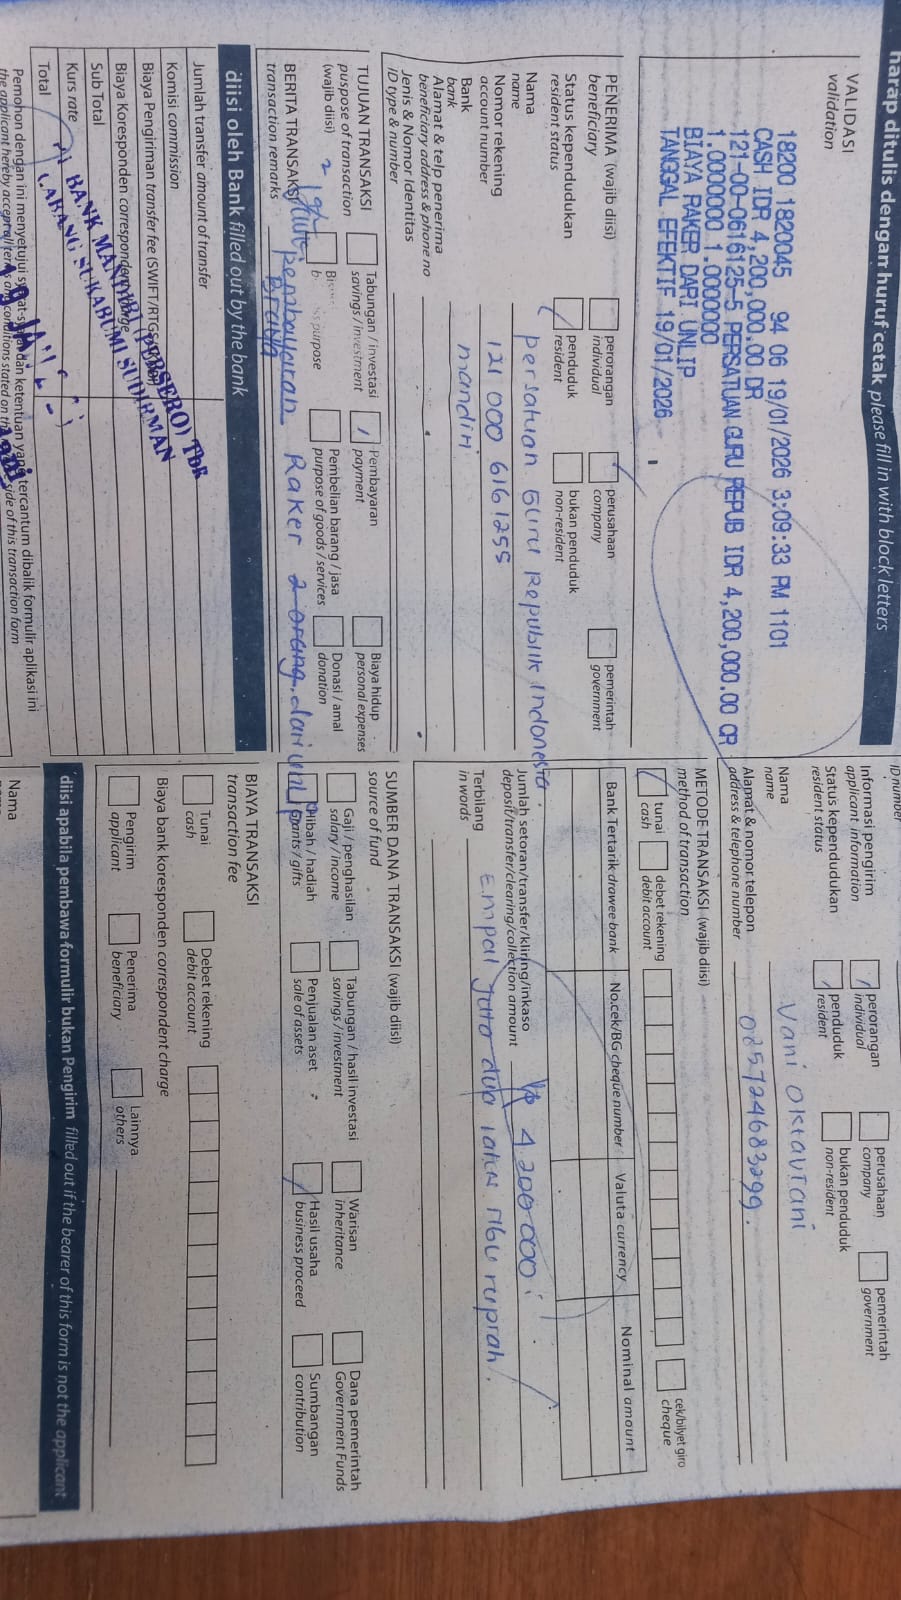 harap ditulis dengan huruf cetak please fill in with block letters
VALIDASI
validation
18200 1820045 94 06 19/01/2026 3:09:33 PM 1101
CASH IDR 4,200,000.00 DR
121-00-0616125-5 PERSATUAN GURU REPUB IDR 4,200,000.00 CR
1.0000000 1.0000000
BIAYA RAKER DARI UNLIP
TANGGAL EFEKTIF 19/01/2026
PENERIMA (wajib diisi)
beneficiary
perorangan
individual
perusahaan
company
pemerintah
government
Status kependudukan
resident status
penduduk
resident
bukan penduduk
non-resident
Nama
name
persatuan Guru Republik Indonesia.
Nomor rekening
account number
121 000 6161255
Bank
bank
mandiri
Alamat & telp penerima
beneficiary address & phone no
Jenis & Nomor Identitas
ID type & number
TUJUAN TRANSAKSI
puspose of transaction
(wajib diisi)
Tabungan / investasi
savings / investment
Pembayaran
payment
Biaya hidup
personal expenses
purpose
Pembelian barang / jasa
purpose of goods / services
Donasi / amal
donation
BERITA TRANSAKSI
transaction remarks
pembayaran Raker 2 orang. dari unlip
diisi oleh Bank filled out by the bank
Jumlah transfer amount of transfer
Komisi commission
Biaya Pengiriman transfer fee (SWIFT/RTGS
Biaya Koresponden correspondent charge
Sub Total
Kurs rate
Total
BANK MANDIRI (PERSERO) Tbk
CABANG SUKABUMI SUDIRMAN
Pemohon dengan ini menyetujui syarat-syarat dan ketentuan yang tercantum dibalik formulir aplikasi ini
the applicant hereby accept all terms and conditions stated on the side of this transaction form
ID number
Informasi pengirim
applicant information
perorangan
individual
perusahaan
company
pemerintah
government
Status kependudukan
resident status
penduduk
resident
bukan penduduk
non-resident
Nama
name
Vani Oktaviani
Alamat & nomor telepon
address & telephone number
085724683299.
METODE TRANSAKSI (wajib diisi)
method of transaction
tunai
cash
debet rekening
debit account
cek/bilyet giro
cheque
Bank Tertarik drawee bank
No.cek/BG cheque number
Valuta currency
Nominal amount
Jumlah setoran/transfer/kliring/inkaso
deposit/transfer/clearing/collection amount
Rp 4.200.000
Terbilang
in words
Empat juta dua ratus ribu rupiah.
SUMBER DANA TRANSAKSI (wajib diisi)
source of fund
Gaji / penghasilan
salary / income
Tabungan / hasil investasi
savings / investment
Warisan
inheritance
Dana pemerintah
Government Funds
Hibah / hadiah
grants / gifts
Penjualan aset
sale of assets
Hasil usaha
business proceed
Sumbangan
contribution
BIAYA TRANSAKSI
transaction fee
Tunai
cash
Debet rekening
debit account
Biaya bank koresponden correspondent charge
Pengirim
applicant
Penerima
beneficiary
Lainnya
others
diisi apabila pembawa formulir bukan Pengirim filled out if the bearer of this form is not the applicant
Nama